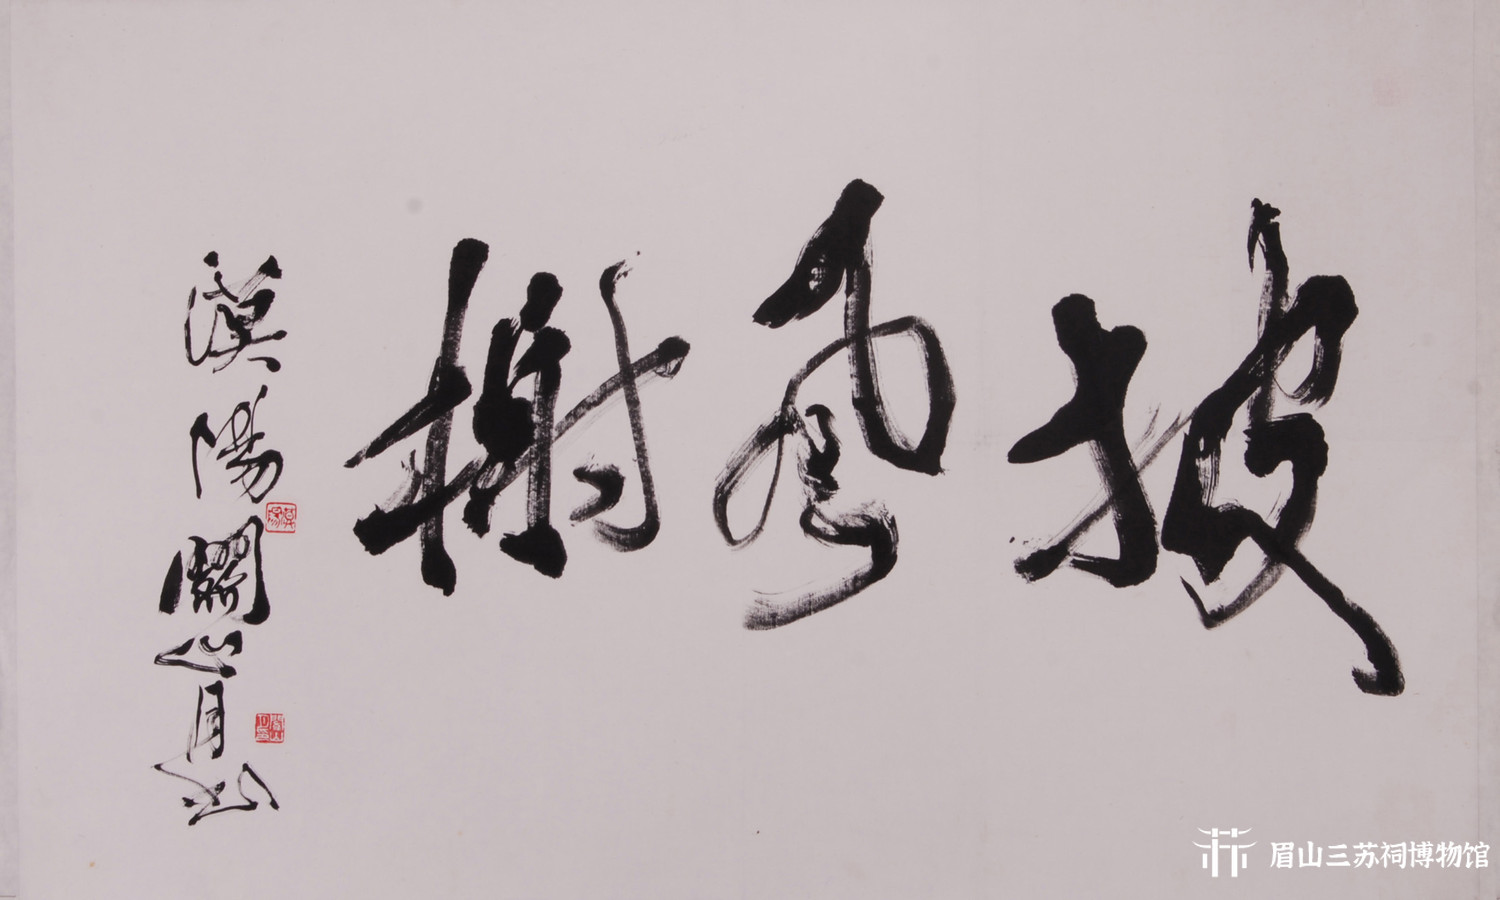 披風榭
漢陽關山月書
眉山三苏祠博物馆